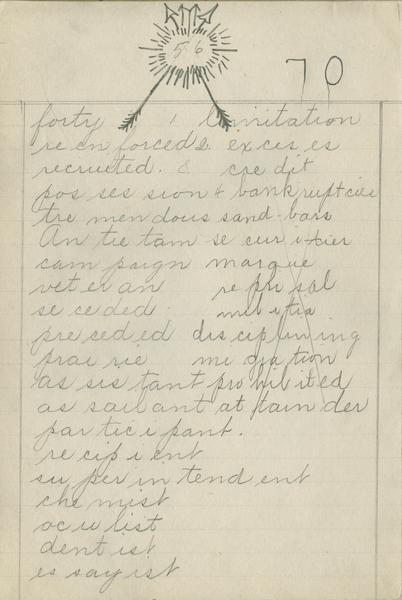 RMA
56
70
forty limitation
re en forced & ex cis es
recruited. & cre dit
pos ses sion & bank rupt cies
tre men dous sand-bars
An tie tam se cur i tier
cam paign marque
vet er an re pri sal
se ce ded mil i tia
pre ced ed dis cip lin ing
prai rie me di a tion
as sis tant pro hib it ed
as sail ant at tain der
par tic i pant.
re cip i ent
su per in tend ent
che mist
oc u list
dent ist
es say ist